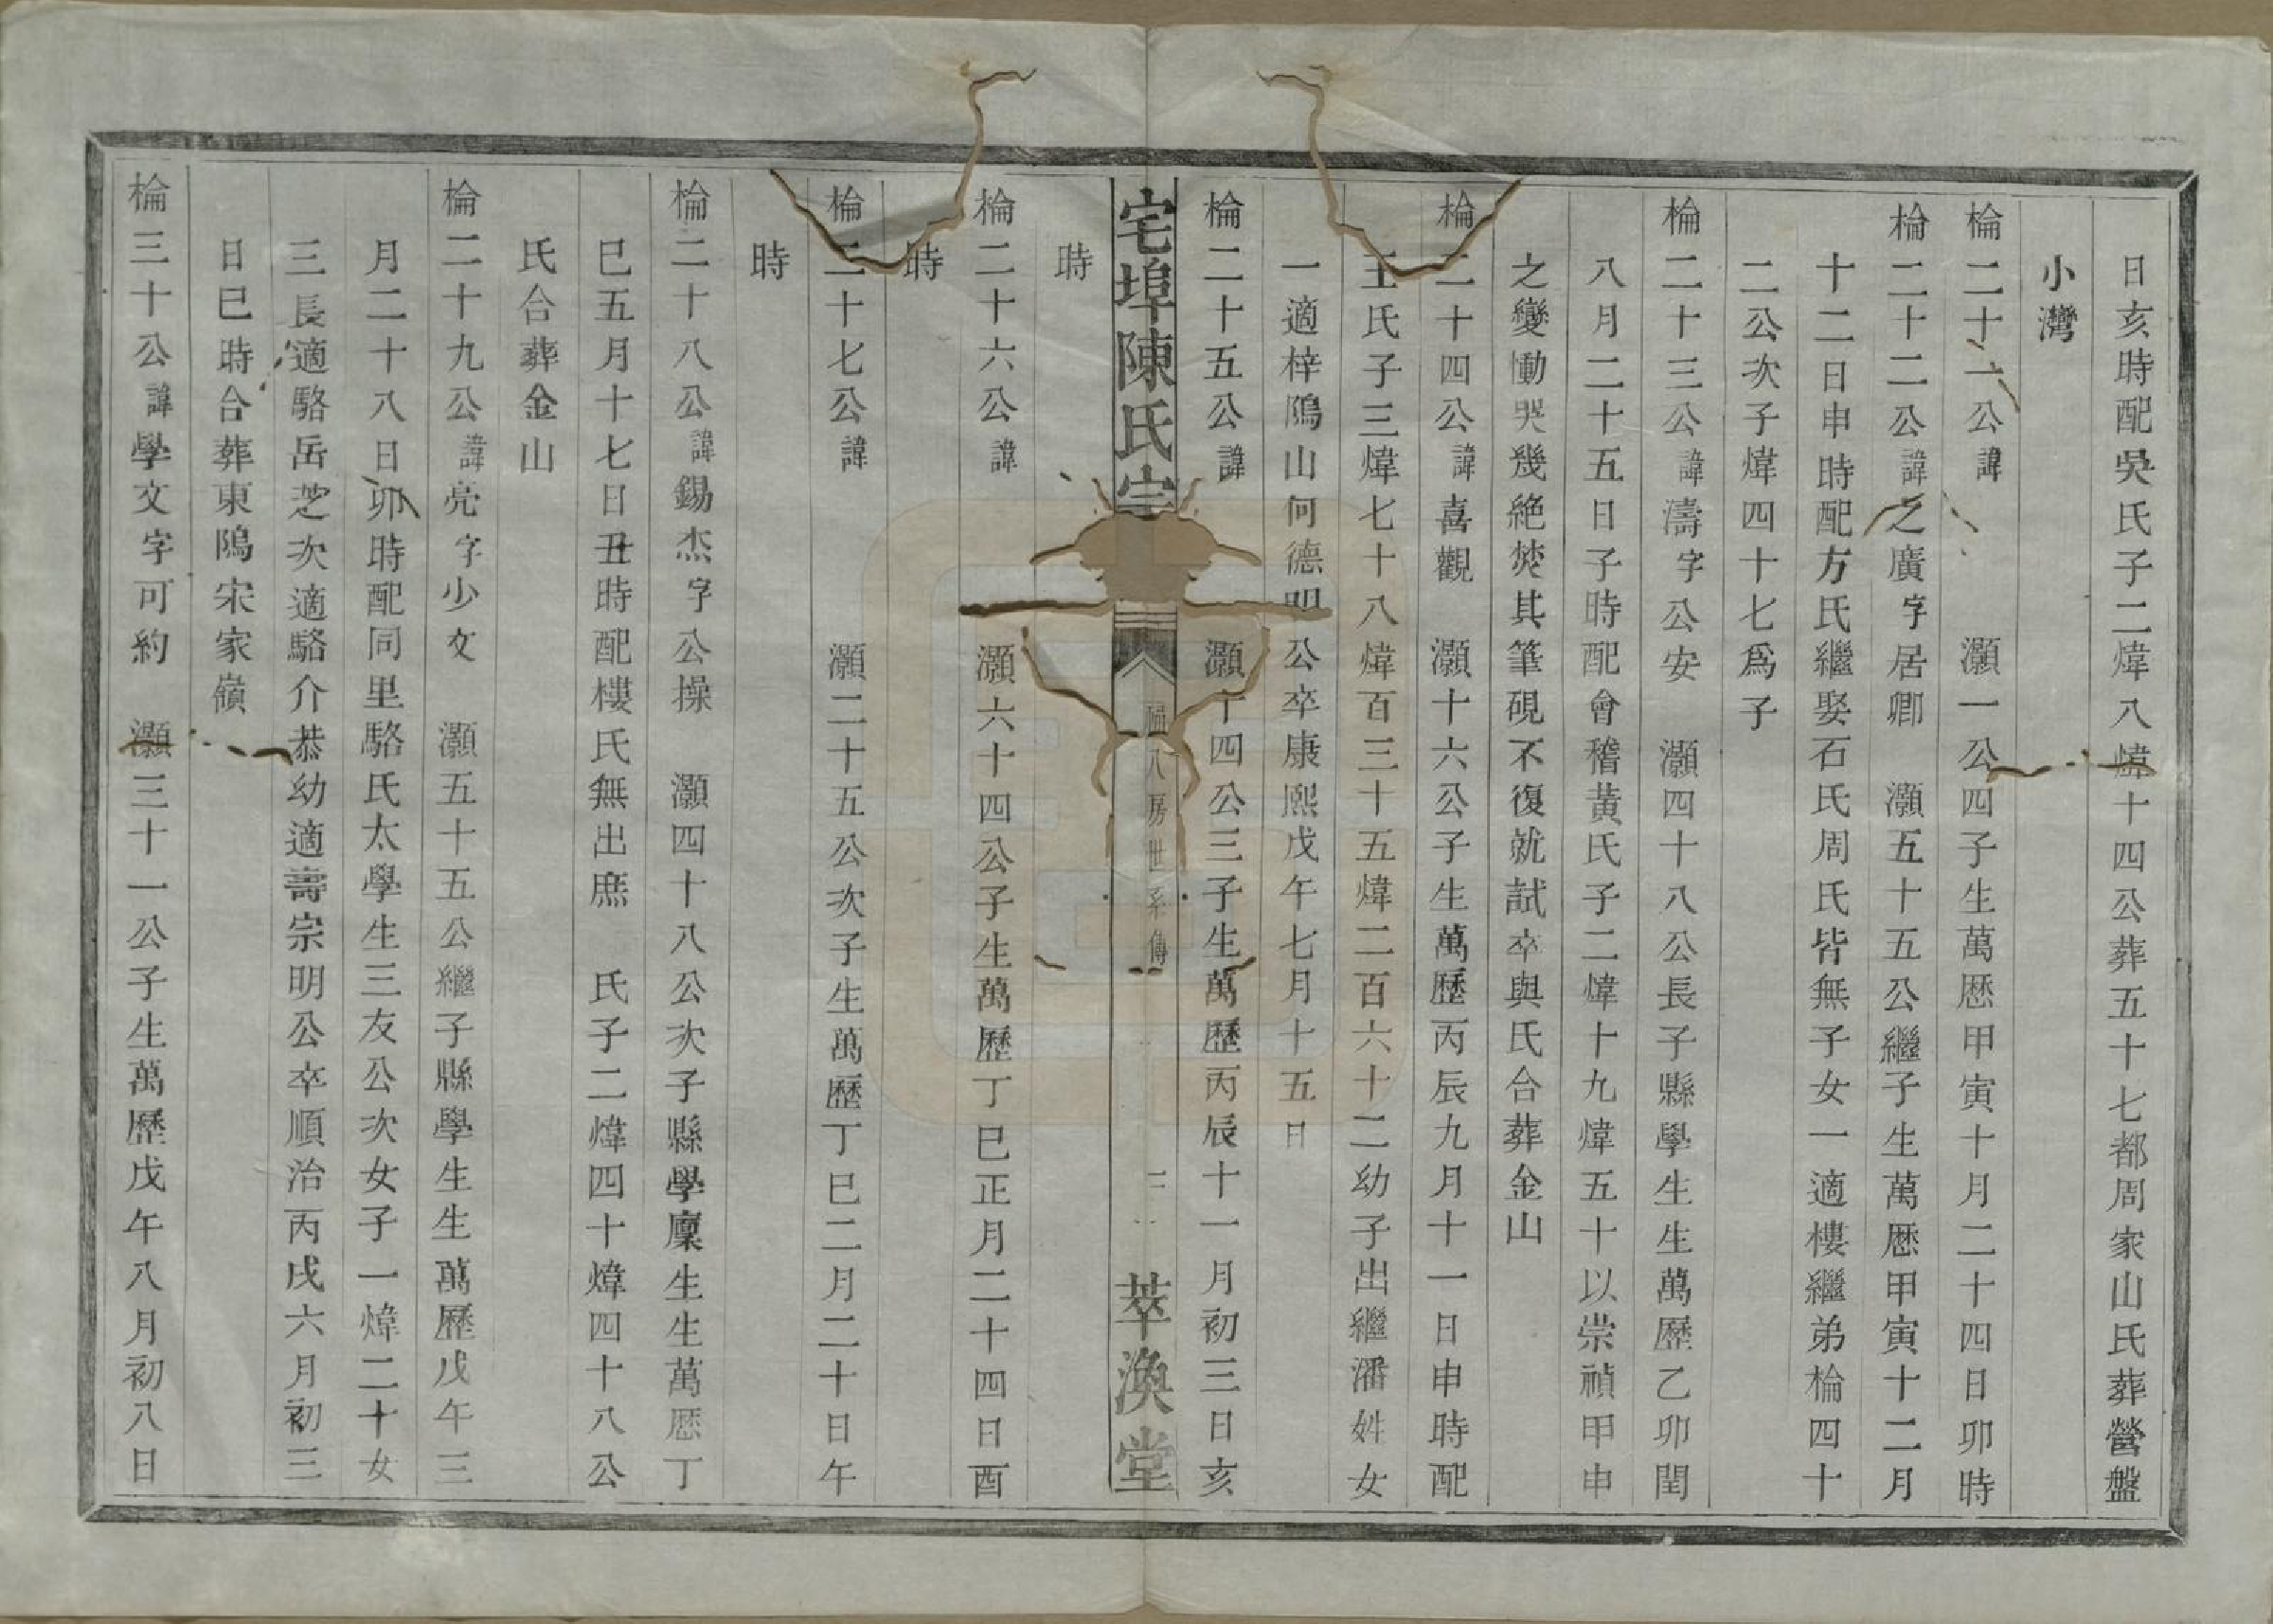 日亥時配吳氏子二煒八煒十四公葬五十七都周家山氏葬營盤
小灣
棆二十一公諱　灝一公四子生萬歷甲寅十月二十四日卯時
棆二十二公諱之廣字居卿　灝五十五公繼子生萬歷甲寅十二月
十二日申時配方氏繼娶石氏周氏皆無子女一適樓繼弟棆四十
二公次子煒四十七爲子
棆二十三公諱濤字公安　灝四十八公長子縣學生生萬歷乙卯閏
八月二十五日子時配會稽黃氏子二煒十九煒五十以崇禎甲申
之變慟哭幾絕焚其筆硯不復就試卒與氏合葬金山
棆二十四公諱喜觀　灝十六公子生萬歷丙辰九月十一日申時配
王氏子三煒七十八煒百三十五煒二百六十二幼子出繼潘姓女
一適梓隝山何德明公卒康熙戊午七月十五日
棆二十五公諱　灝十四公三子生萬歷丙辰十一月初三日亥
時
宅埠陳氏宗　八房世系傳　萃渙堂
棆二十六公諱　灝六十四公子生萬歷丁巳正月二十四日酉
時
棆二十七公諱　灝二十五公次子生萬歷丁巳二月二十日午
時
棆二十八公諱錫杰字公操　灝四十八公次子縣學廩生生萬歷丁
巳五月十七日丑時配樓氏無出庶　氏子二煒四十煒四十八公
氏合葬金山
棆二十九公諱亮字少文　灝五十五公繼子縣學生生萬歷戊午三
月二十八日卯時配同里駱氏太學生三友公次女子一煒二十女
三長適駱岳芝次適駱介恭幼適壽宗明公卒順治丙戌六月初三
日巳時合葬東隝宋家嶺
棆三十公諱學文字可約　灝三十一公子生萬歷戊午八月初八日